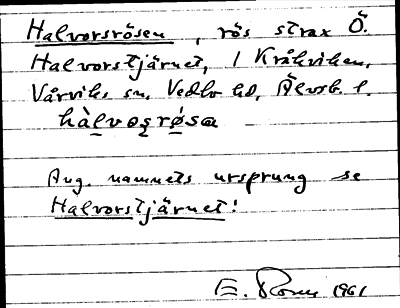 Halvorsrösen, rös strax Ö.
Halvorstjärnet, i Kråkviken,
Vårviks sn, Vedbo hd, Älvsb. l.
hàlvoșrø̀sa
Ang. namnets ursprung se
Halvorstjärnet!
E. 1961